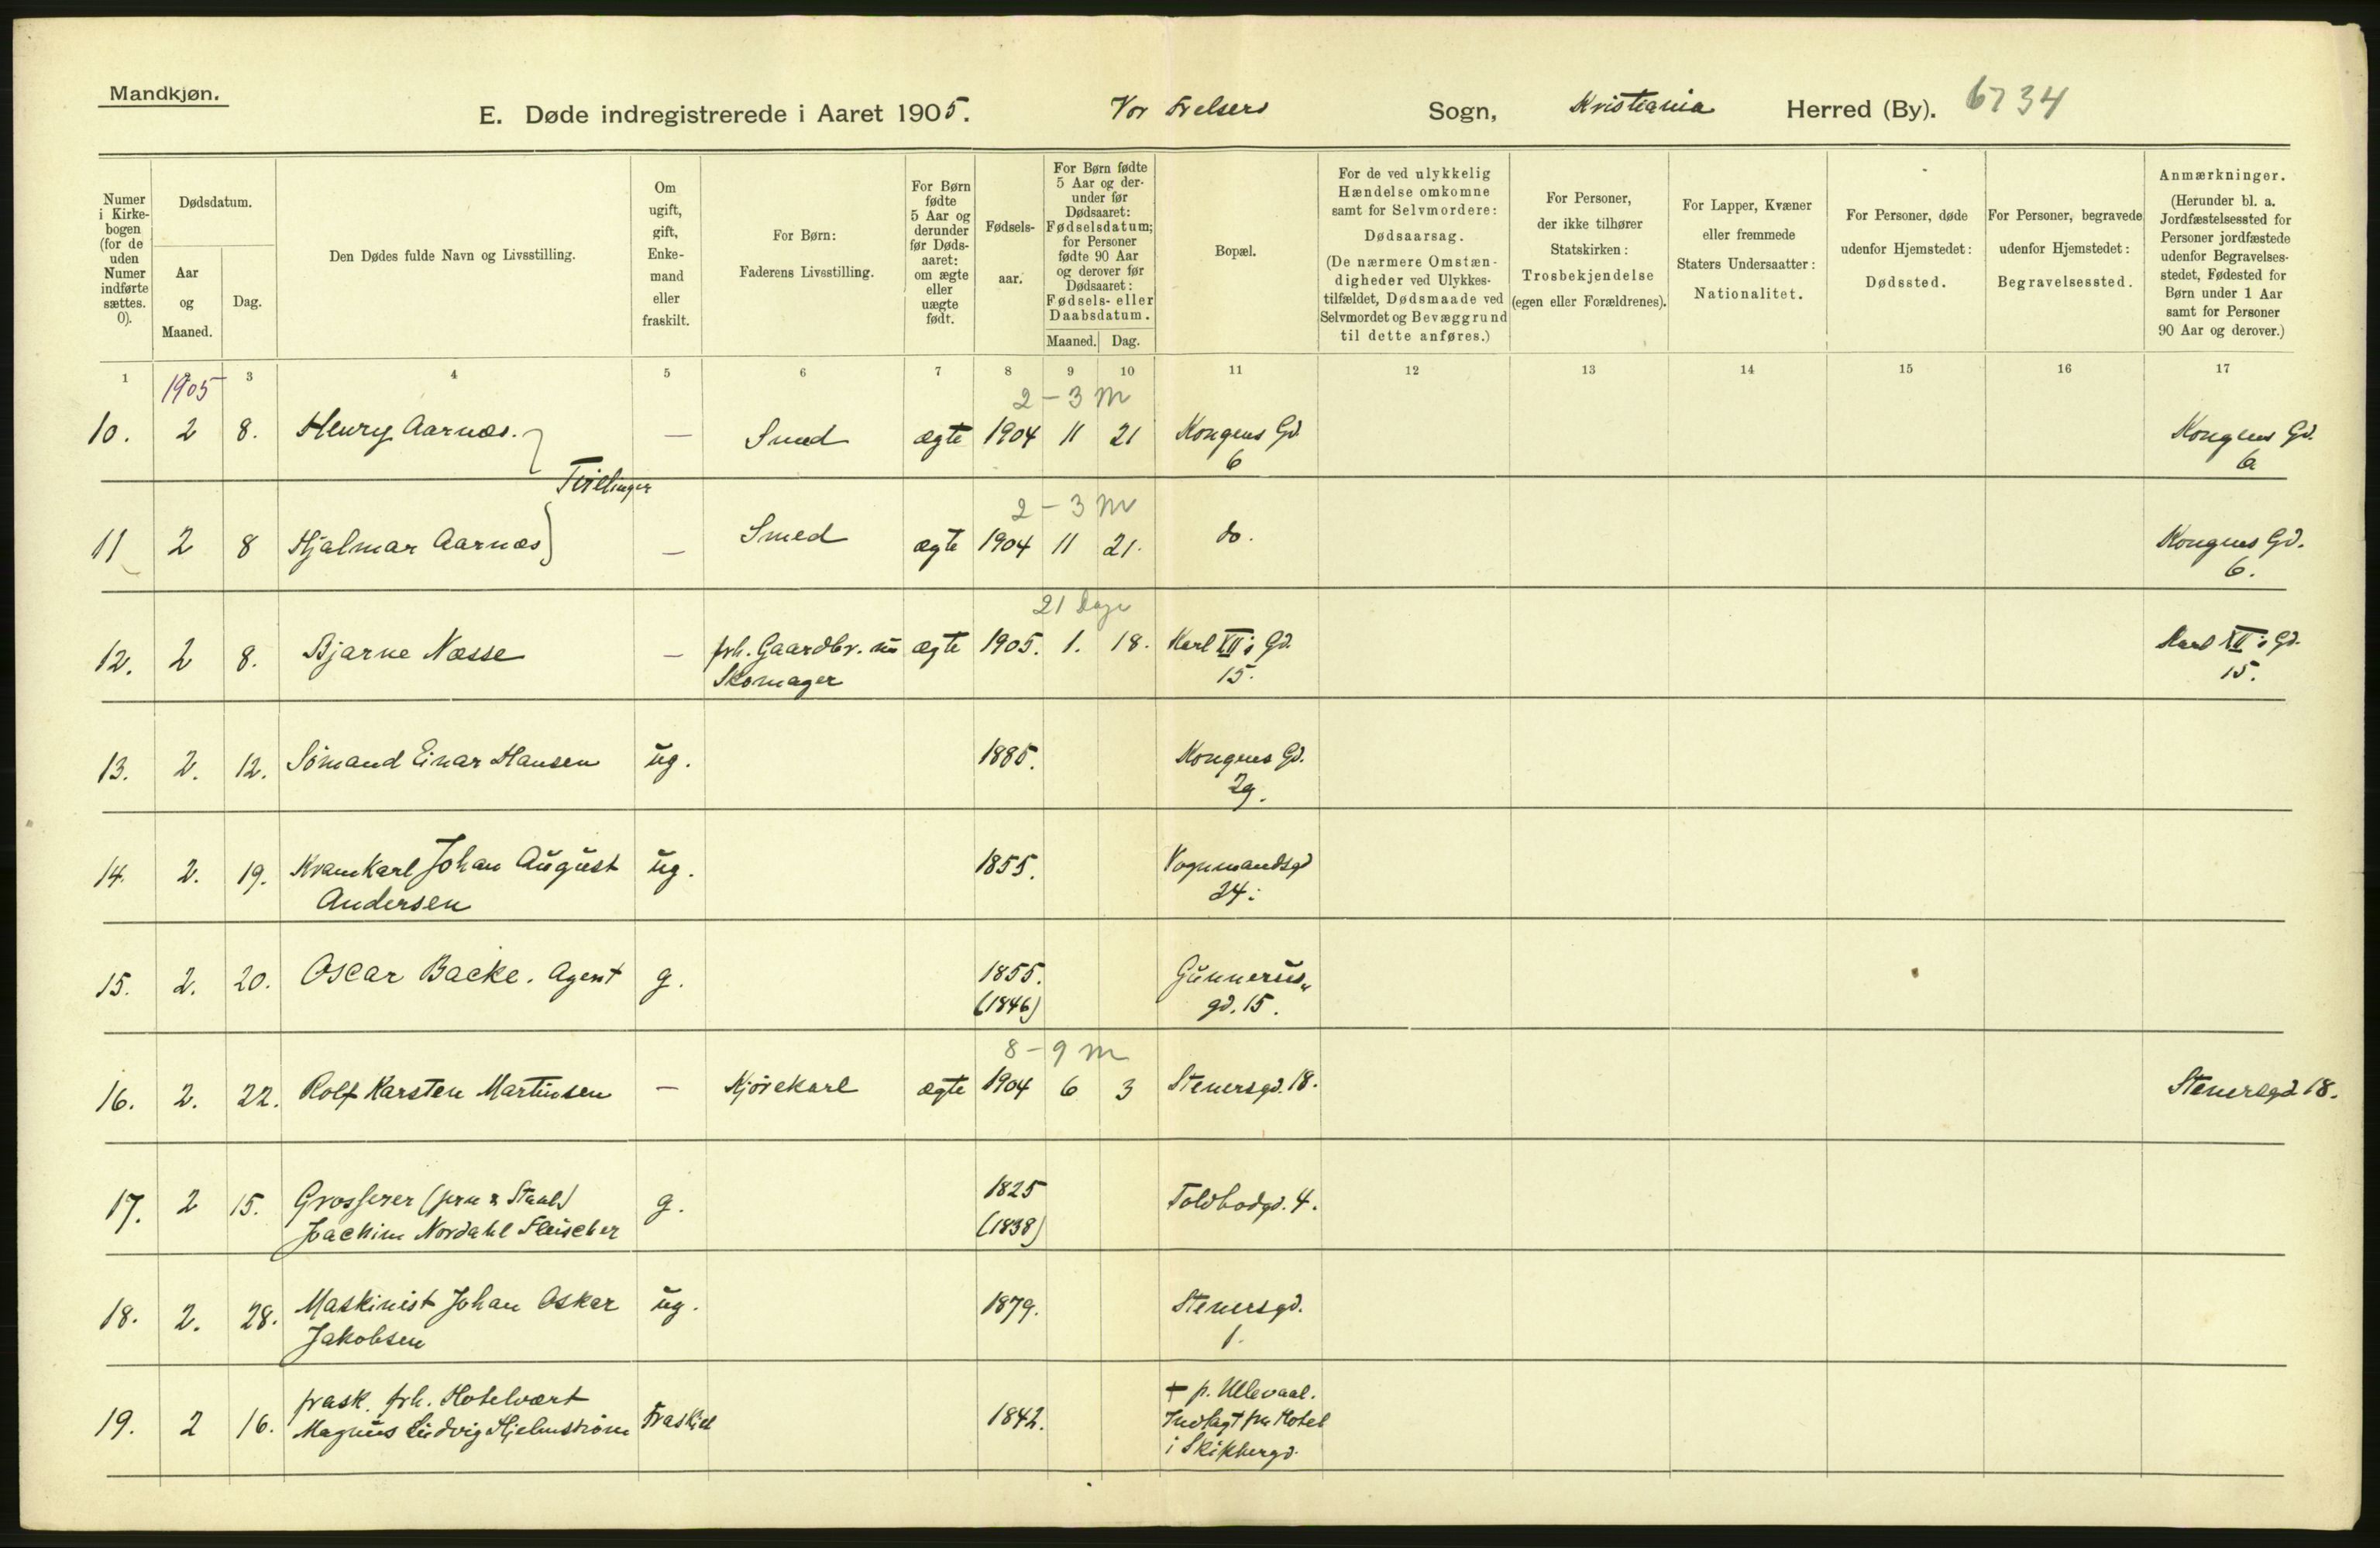 Mandkjøn.
E. Døde indregistrerede i Aaret 1905. Vor Frelsers Sogn, Kristiania Herred (By). 6734
Numer i Kirkebogen (for de uden Numer indførte sættes. 0).
Dødsdatum.
Aar og Maaned.
Dag.
Den Dødes fulde Navn og Livsstilling.
Om ugift, gift, Enkemand eller fraskilt.
For Børn: Faderens Livsstilling.
For Børn fødte 5 Aar og derunder før Dødsaaret: om ægte eller uægte født.
Fødselsaar.
For Børn fødte 5 Aar og derunder før Dødsaaret: Fødselsdatum; for Personer fødte 90 Aar og derover før Dødsaaret: Fødsels- eller Daabsdatum.
Maaned. Dag.
Bopæl.
For de ved ulykkelig Hændelse omkomne samt for Selvmordere: Dødsaarsag. (De nærmere Omstændigheder ved Ulykkestilfældet, Dødsmaade ved Selvmordet og Bevæggrund til dette anføres.)
For Personer, der ikke tilhører Statskirken: Trosbekjendelse (egen eller Forældrenes).
For Lapper, Kvæner eller fremmede Staters Undersaatter: Nationalitet.
For Personer, døde udenfor Hjemstedet: Dødssted.
For Personer, begravede udenfor Hjemstedet: Begravelsessted.
Anmærkninger. (Herunder bl. a. Jordfæstelsessted for Personer jordfæstede udenfor Begravelsesstedet, Fødested for Børn under 1 Aar samt for Personer 90 Aar og derover.)
1 3 4 5 6 7 8 9 10 11 12 13 14 15 16 17
1905
2 - 3 M
10. 2 8. Henry Aarnæs. — Smed ægte 1904 11 21 Kongens Gd. 6 Kongens Gd. 6
Tvillinger
2 - 3 M
11 2 8 Hjalmar Aarnæs — Smed ægte 1904 11 21. do. Kongens Gd. 6.
21 Dage
12. 2 8. Bjarne Næsse — frh. Gaardbr. nu ægte 1905. 1. 18. Karl XII s Gd. 15. Karl XII s Gd. 15.
Skomager
13. 2. 12. Sømand Einar Hansen ug. 1885. Kongens Gd. 29.
14. 2. 19. Kramkarl Johan August ug. 1855. Vognmandsgd 24.
Andersen
15. 2. 20. Oscar Backe. Agent g. 1855. Gunnerus
(1846) gd. 15.
8 - 9 m
16. 2. 22. Rolf Karsten Martinsen — Kjørekarl ægte 1904 6 3 Stenersgd. 18. Stenersgd 18.
17. 2 15. Grosserer g. 1825 Toldbodgd. 4.
Joachim Nordahl Fleischer (1838)
18. 2. 28. Maskinist Johan Oskar ug. 1879. Stenersgd. 1.
Jakobsen
frask. frh. Hotelvært + p. Ullevaal.
19. 2 16. Magnus Ludvig Hjelmstrøm Fraskilt 1842. Indlagt fra Hotel
i Skippergd.